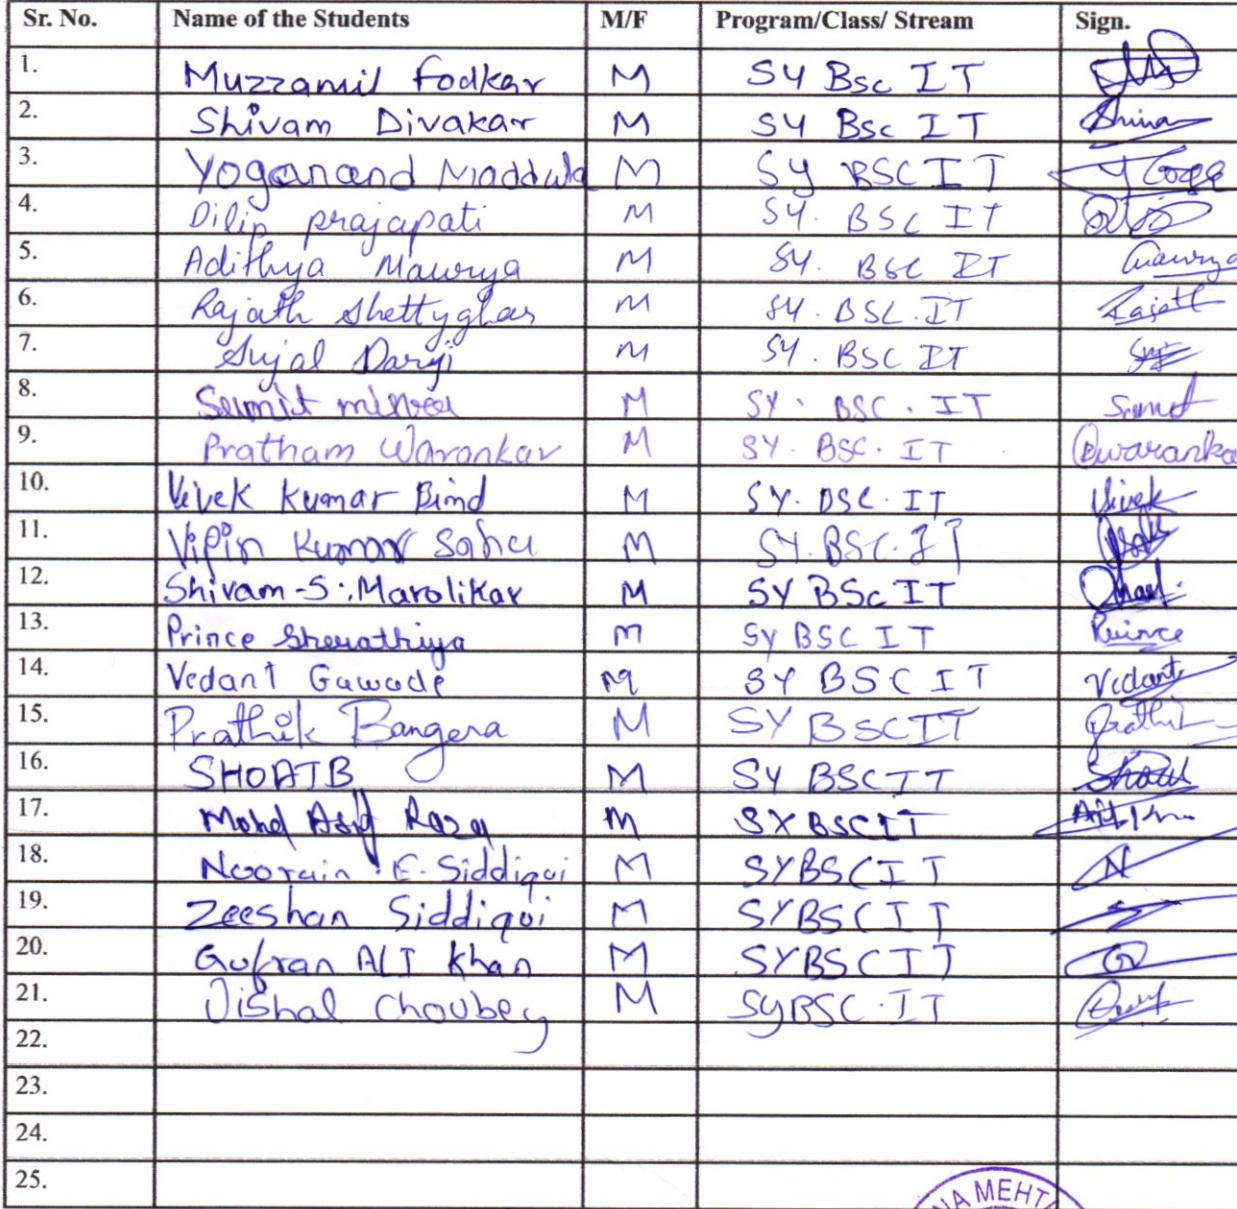 Sr. No. Name of the Students M/F Program/Class/ Stream Sign.
1. Muzzamil Fodkar M SY Bsc IT
2. Shivam Divakar M SY Bsc IT Shivam
3. Yoganand Maddula M SY BSC IT
4. Dilip prajapati M SY. BSC IT
5. Adithya Maurya M SY. BSC IT Maurya
6. Rajath Shettyghar M SY. BSC. IT Rajath
7. Sujal Darji M SY. BSC IT
8. Sumit mishra M SY. BSC. IT Sumit
9. Pratham Warankar M SY. BSC. IT Pwarankar
10. Vivek Kumar Bind M SY. BSC. IT Vivek
11. Vipin Kumar Sahu M SY. BSC. IT
12. Shivam-S. Marolikar M SY BSc IT
13. Prince Sherathiya M SY BSC IT Prince
14. Vedant Gawade M SY BSC IT Vedant
15. Prathik Bangera M SY BSCIT Prathik
16. SHOAIB M SY BSCIT Shoaib
17. Mohd Asif Raza M SY BSCIT
18. Noorain E. Siddiqui M SYBSCIT N
19. Zeeshan Siddiqui M SYBSCIT
20. Gufran ALI Khan M SYBSCIT G
21. Vishal Choubey M SyBSC.IT
22.
23.
24.
25.
NA MEHTA